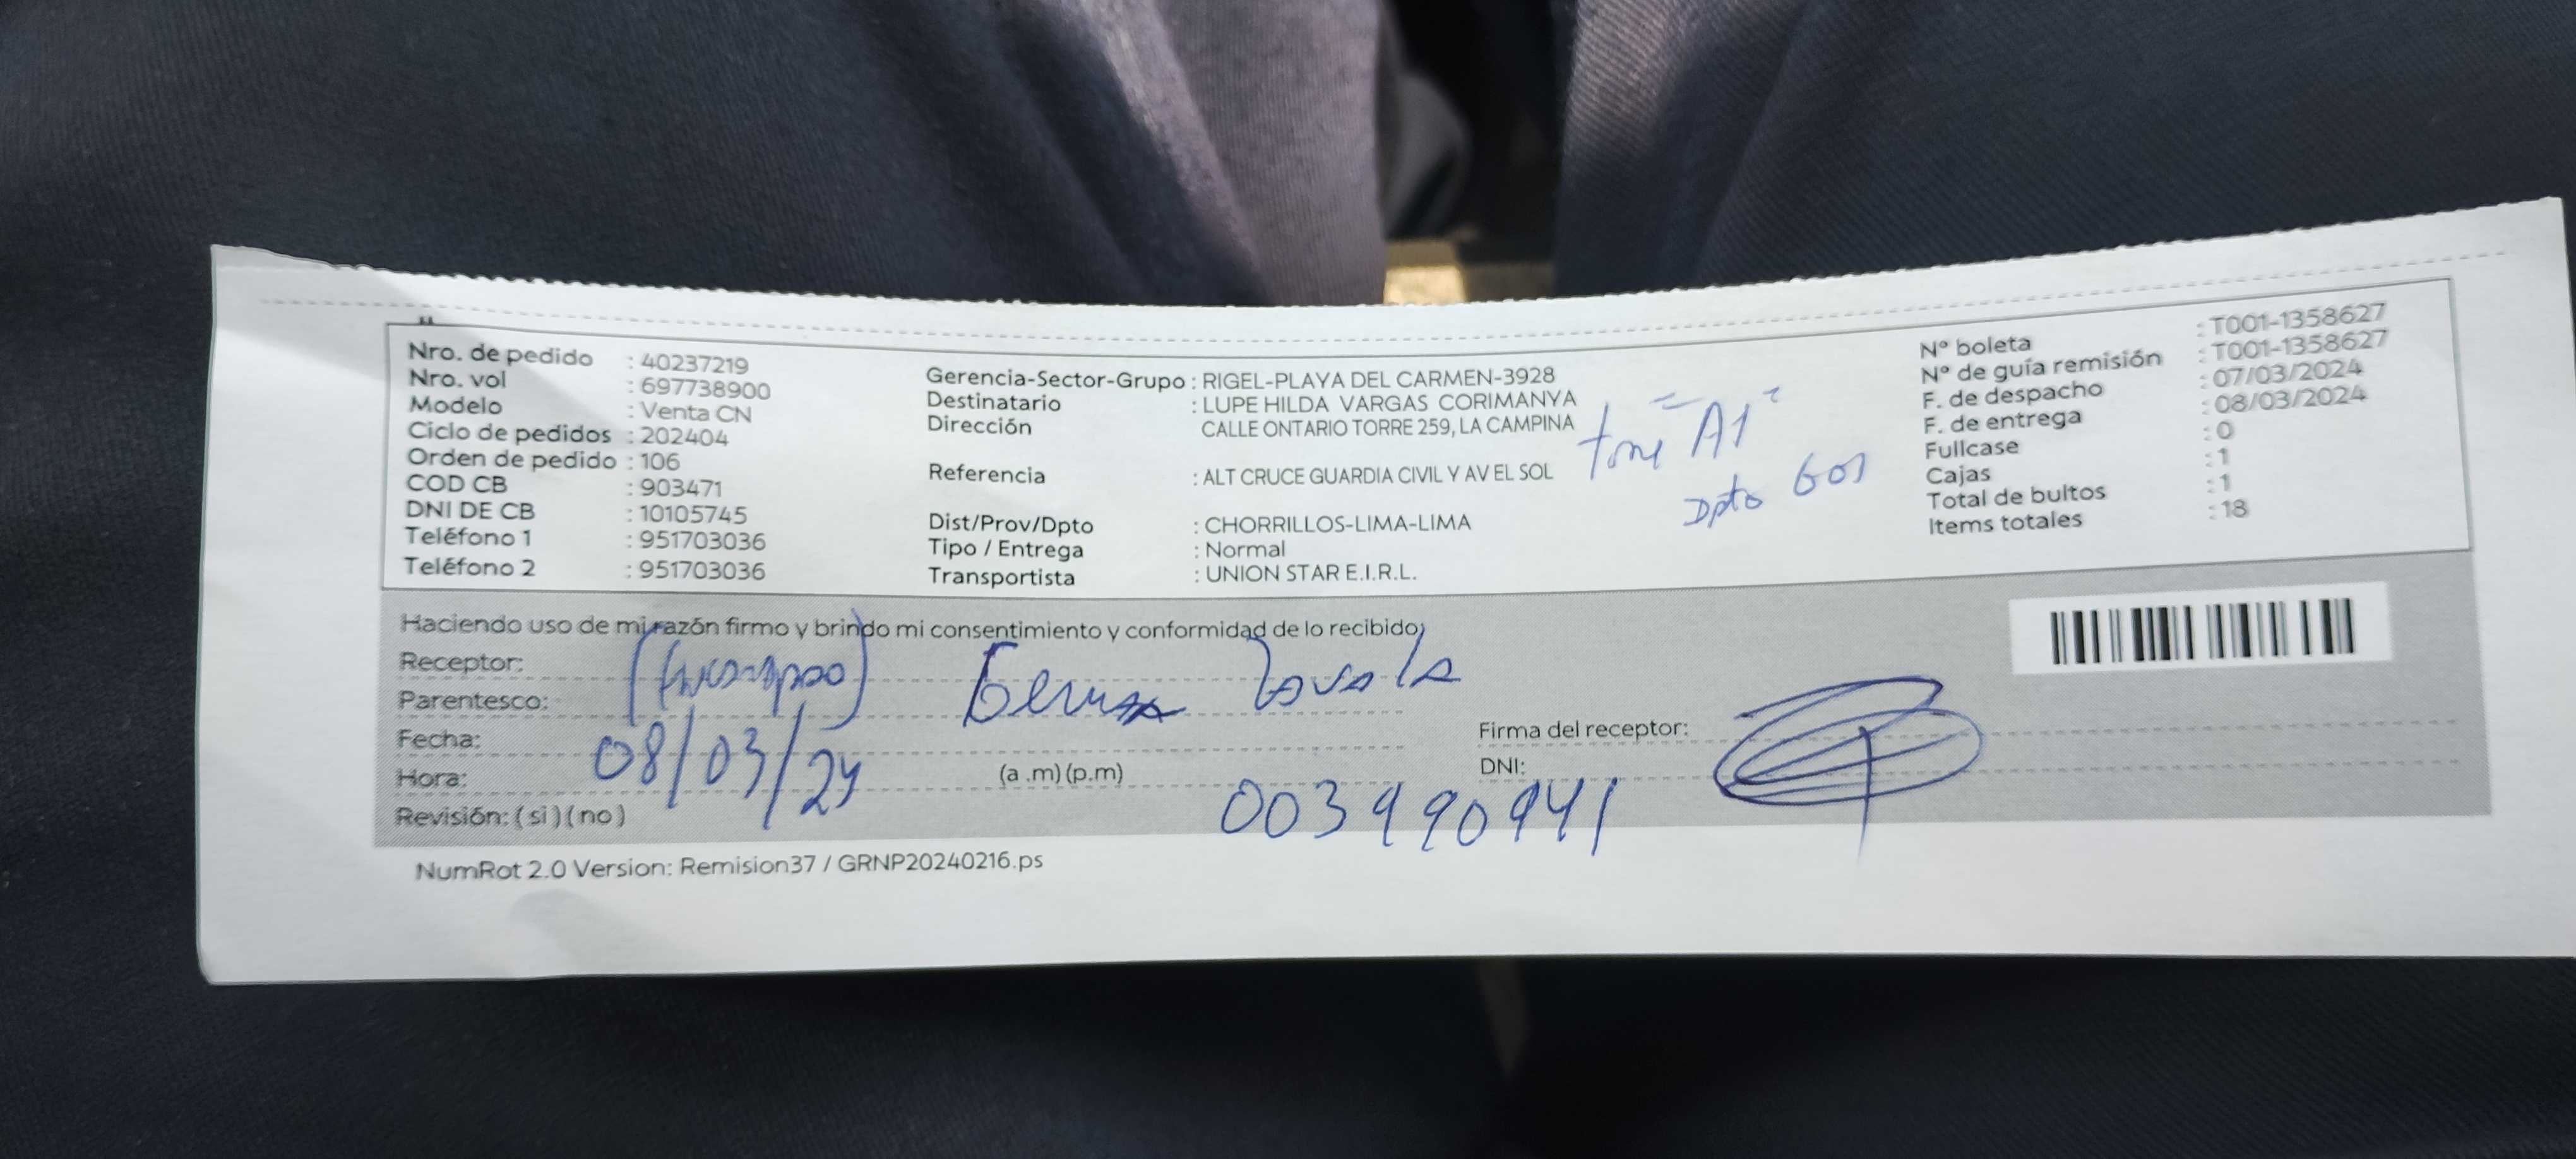 Nro. de pedido : 40237219
Nro. vol : 697738900
Modelo : Venta CN
Ciclo de pedidos : 202404
Orden de pedido : 106
COD CB : 903471
DNI DE CB : 10105745
Teléfono 1 : 951703036
Teléfono 2 : 951703036
Gerencia-Sector-Grupo : RIGEL-PLAYA DEL CARMEN-3928
Destinatario : LUPE HILDA VARGAS CORIMANYA
Dirección CALLE ONTARIO TORRE 259, LA CAMPINA
Referencia : ALT CRUCE GUARDIA CIVIL Y AV EL SOL
Dist/Prov/Dpto : CHORRILLOS-LIMA-LIMA
Tipo / Entrega : Normal
Transportista : UNION STAR E.I.R.L.
"A1"
Dpto 601
Nº boleta : T001-1358627
Nº de guía remisión : T001-1358627
F. de despacho : 07/03/2024
F. de entrega : 08/03/2024
Fullcase : 0
Cajas : 1
Total de bultos : 1
Items totales : 18
Haciendo uso de mi razón firmo y brindo mi consentimiento y conformidad de lo recibido
Receptor:
Parentesco: Zavala
Fecha: 08/03/24
Hora: (a .m) (p.m)
Revisión: ( si ) ( no )
Firma del receptor:
DNI:
003990941
NumRot 2.0 Version: Remision37 / GRNP20240216.ps